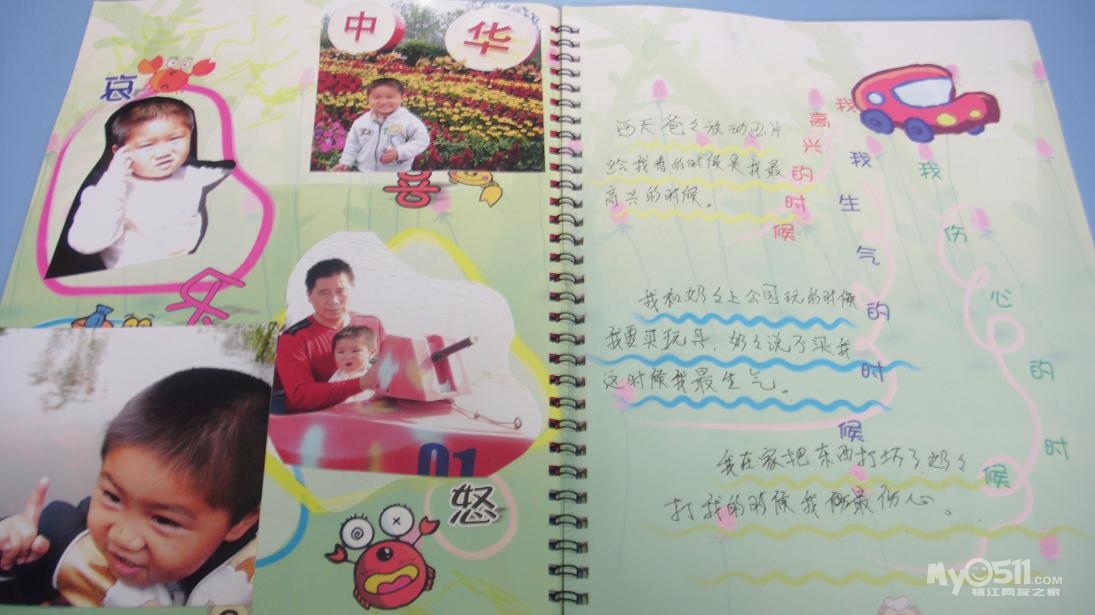 中 华
哀
喜
乐
01
怒
我高兴的时候
我生气的时候
我伤心的时候
两天爸々放动画片
给我看的时候是我最
高兴的时候。
我和奶々上公园玩的时候
我要买玩具，奶々说不买我
这时候我最生气。
我在家把东西打坏了奶々
打我的时候我最伤心。
My0511.COM
镇江网友之家